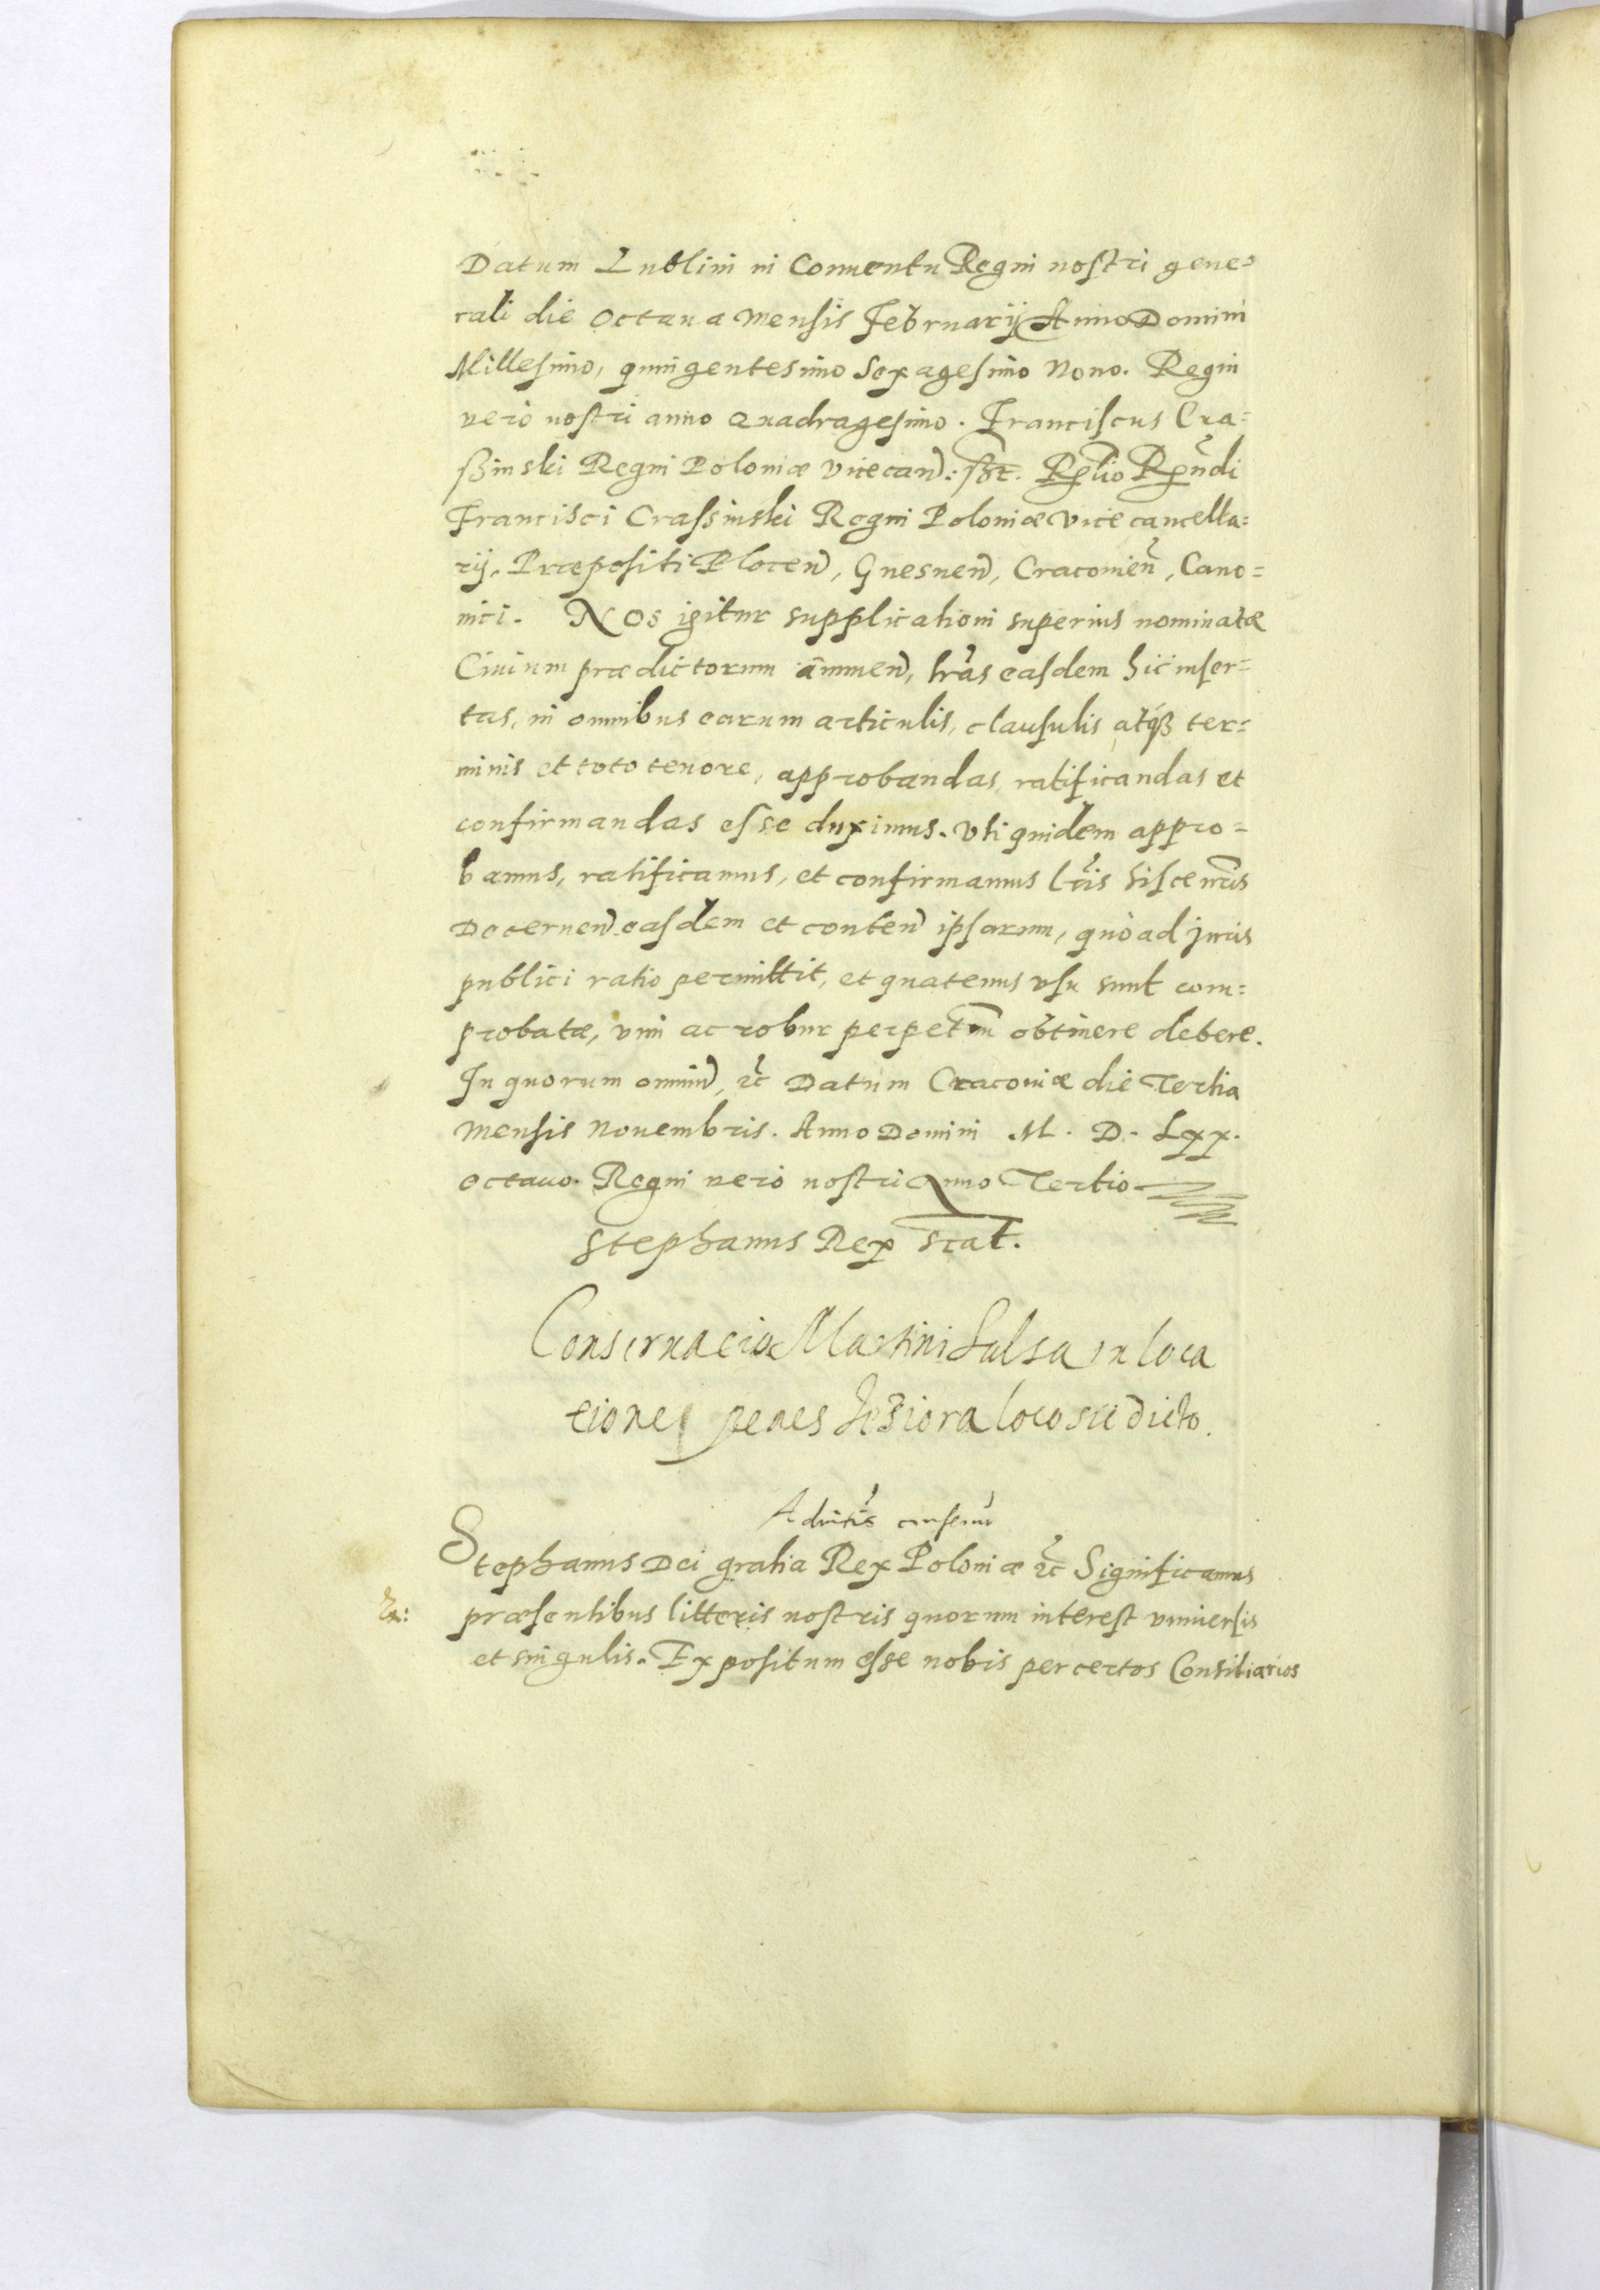 Datum Lublini in Conuentu Regni nostri gene=
rali die Octaua Mensis Februarij Anno Domini
Millesimo, quingentesimo Sexagesimo Nono. Regni
vero nostri anno Quadragesimo. Franciscus Cra=
ßinski Regni Poloniæ Vicecan̄: ßt. Rỹlio Rx̃ndi
Francisci Crassinski Regni Poloniæ Vicecancella=
rij, Præpositi Plocen̄, Gnesnen̄, Cracouien̄, Cano=
nici. Nos igitur supplicationi superius nominatæ
Ciuium prædictorum ānnuen̄, lrãs easdem hic inser=
tas, in omnibus earum articulis, clausulis atqß ter=
minis et toto tenore, approbandas, ratificandas et
confirmandas esse duximus. Vti quidem appro=
bamus, ratificamus, et confirmamus Lrĩs hisce nr̃is
Decernen̄ easdem et conten̄ ipsarum, quò ad juris
publici ratio permittit, et quatenus vsu sunt com=
probatæ, vim ac robur perpetm̃ obtinere debere.
In quorum omniū, &c̃ Datum Cracouiæ die Tertia
Mensis Nouembris. Anno Domini M. D. Lxx.
octauo. Regni vero nostri Anno Tertio
Stephanus Rex s̃cat.
Conseruacio Martini Salsa in loca
cione penes Jeziora loco sic dicto.
Aduit̃s consenũ
Stephanus Dei gratia Rex Poloniæ &c̃ Significamus
præsentibus litteris nostris quorum interest vniuersis
et singulis. Expositum esse nobis per certos Consiliarios